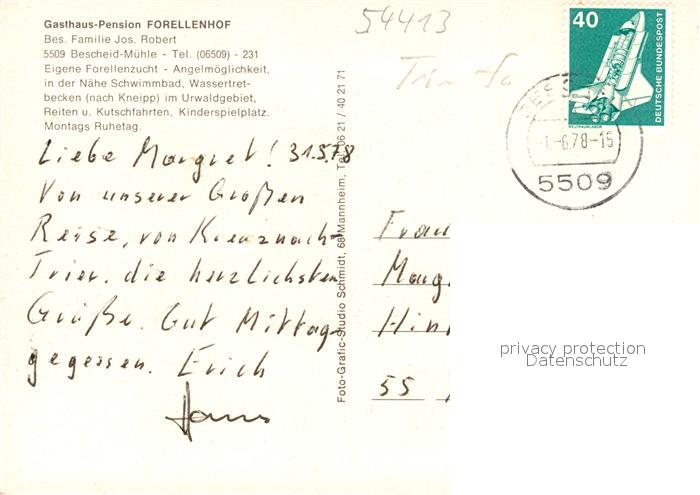 Gasthaus-Pension FORELLENHOF
Bes. Familie Jos. Robert
5509 Bescheid-Mühle - Tel. (06509) - 231
Eigene Forellenzucht - Angelmöglichkeit,
in der Nähe Schwimmbad, Wassertret-
becken (nach Kneipp) im Urwaldgebiet,
Reiten u. Kutschfahrten, Kinderspielplatz.
Montags Ruhetag.
Liebe Margret! 31.5.78
Von unserer Großen
Reise, von Kreuznach-
Trier, die herzlichsten
Grüße. Gut Mittag-
gegessen. Erich
Hans
Foto-Grafic-Studio Schmidt, 68 Mannheim, Tel. 06 21 / 40 21 71
54413
40
DEUTSCHE BUNDESPOST
-1.-6.78-15
5509
Frau
Marg
Hin
55
privacy protection
Datenschutz